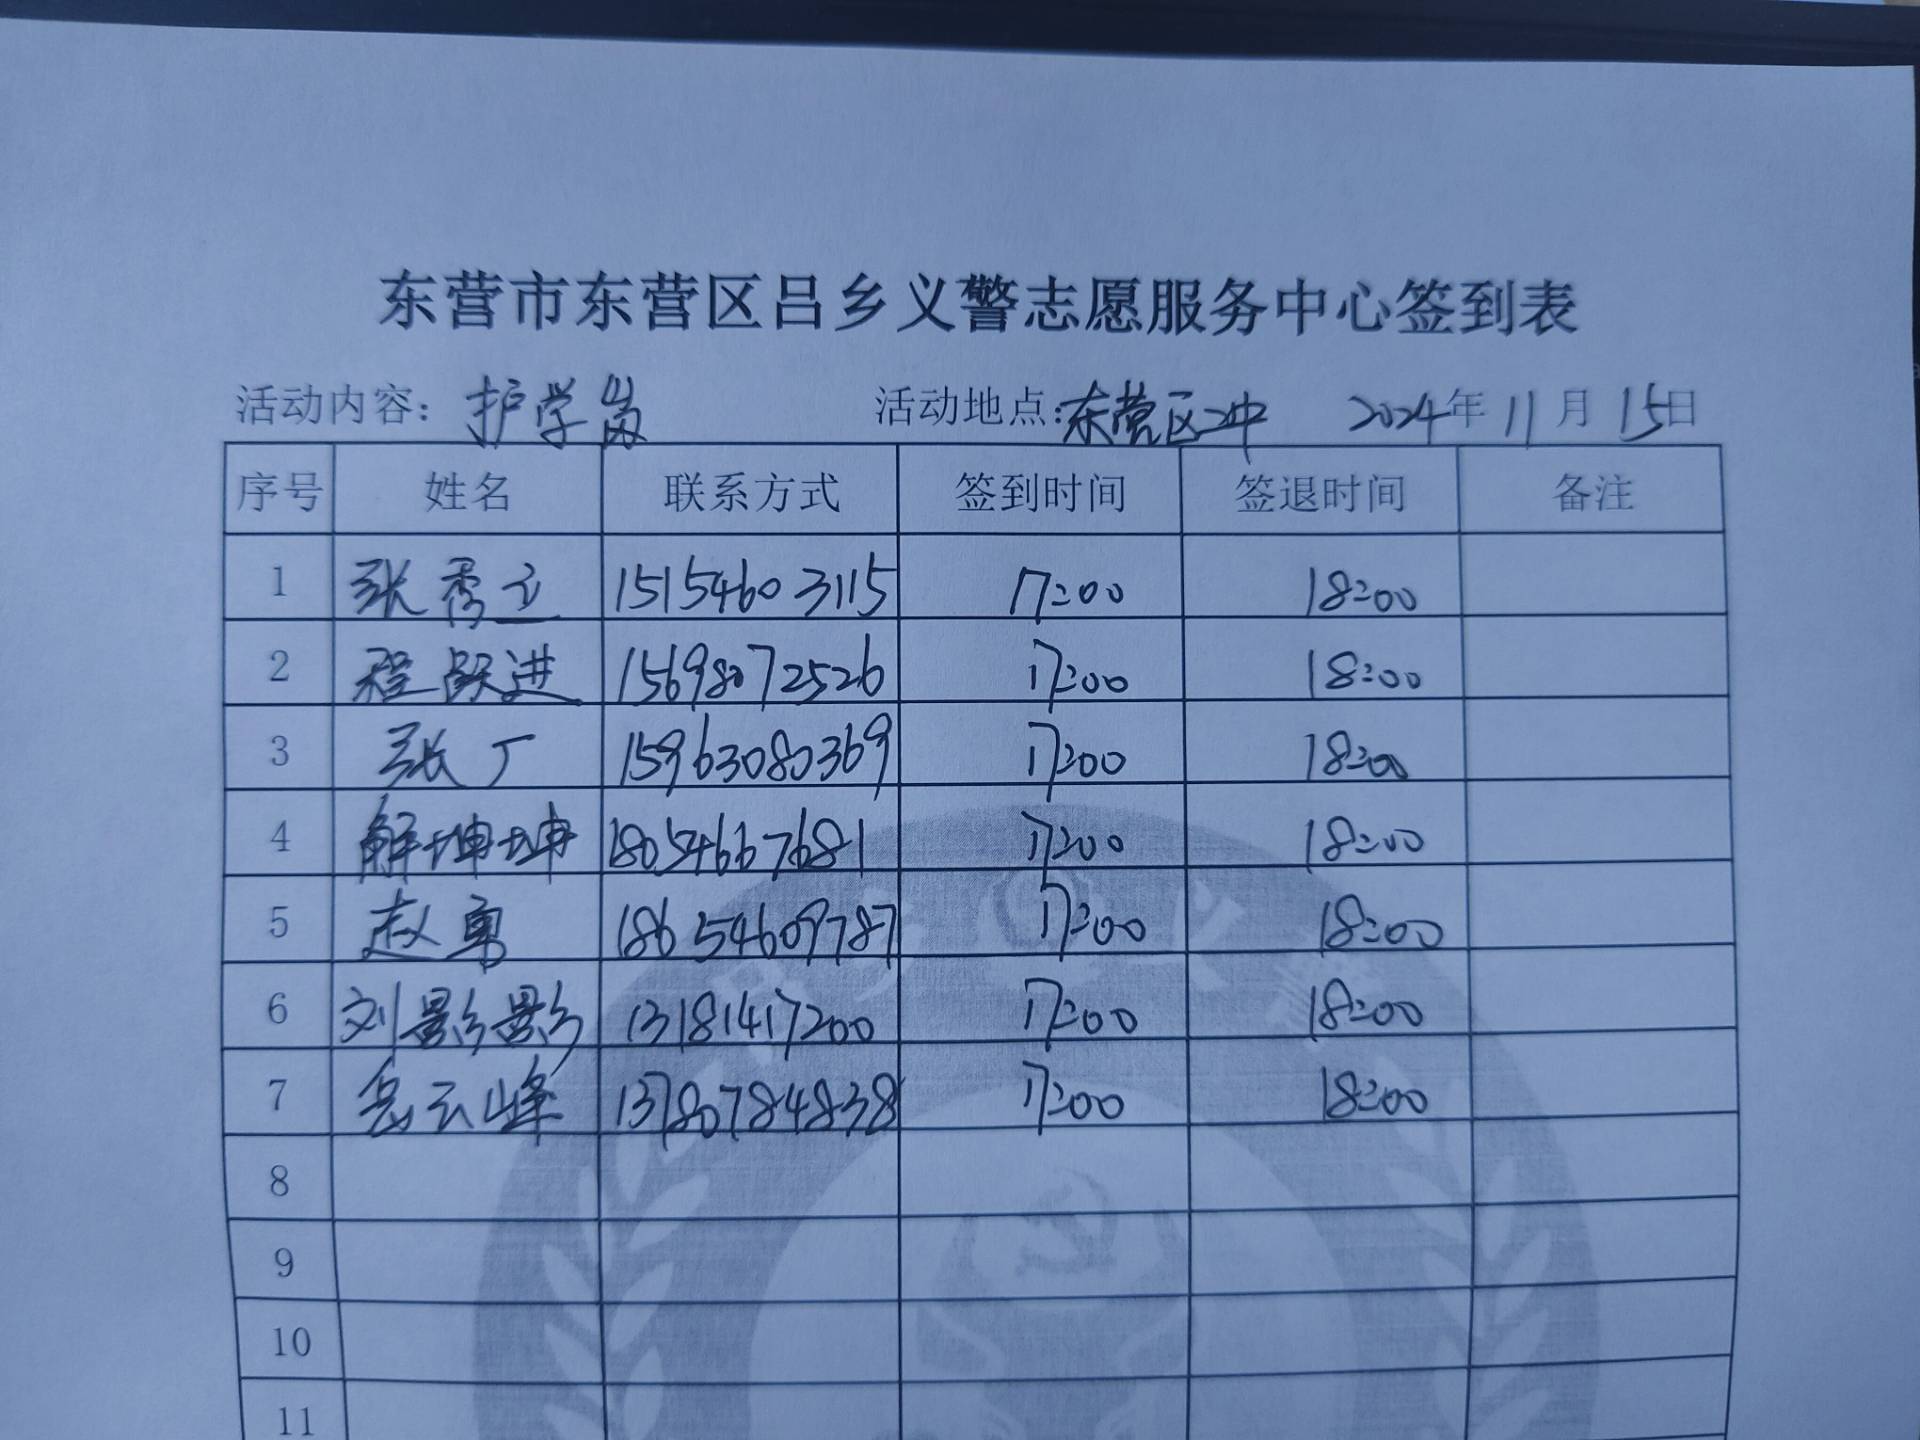 东营市东营区吕乡义警志愿服务中心签到表
活动内容：护学岗 活动地点：东营区二中 2024年11月15日
序号 姓名 联系方式 签到时间 签退时间 备注
1 张秀立 15154603115 17:00 18:00
2 程跃进 15698072526 17:00 18:00
3 张广 15963080369 17:00 18:00
4 解坤坤 18054667681 17:00 18:00
5 赵勇 18654609787 17:00 18:00
6 刘影影 13181417200 17:00 18:00
7 岳云峰 13780784838 17:00 18:00
8
9
10
11